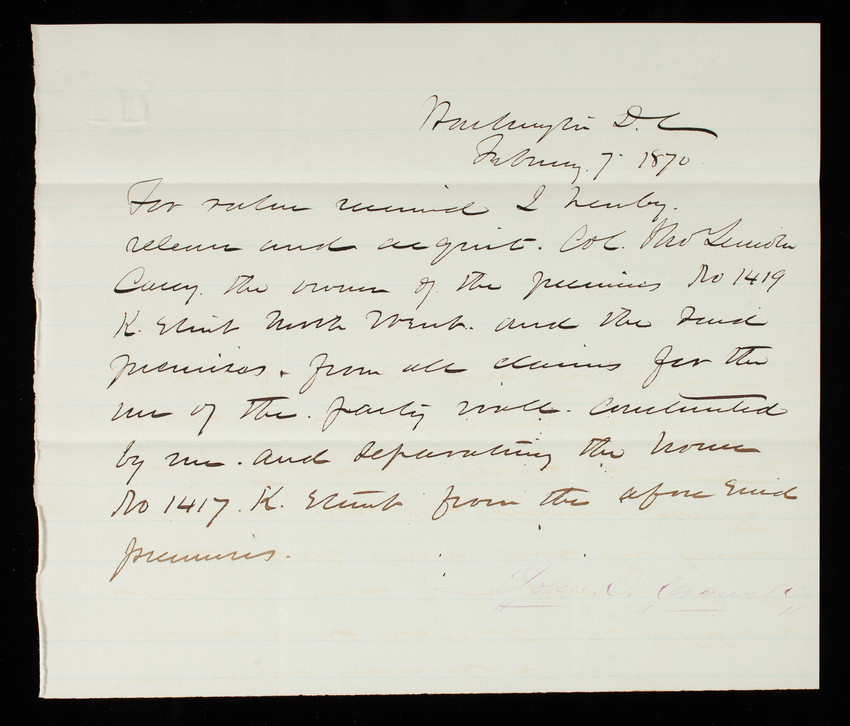 Washington D.C
February, 7. 1870.
For value received I hereby.
release and acquit. Col. Tho Lincoln
Casey. the owner of the premises No 1419
K. Street North West. and the said
premises. from all claims for the
use of the. party wall. constructed
by me. and separating the house
No 1417. K. Street from the afore said
premises.
John O. Evans